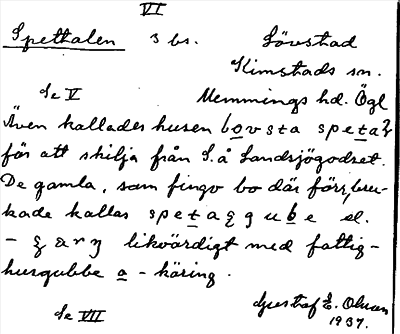 VI
Spettalen 3 bs. Lövstad
Kimstads sn.
Se V Memmings hd. Ögl
Även kallades husen bovsta speta
för att skilja från S. å Landsjögodset.
De gamla, som fingo bo där förr, bru-
kade kallas gube el.
– likvärdigt med fattig-
husgubbe a - käring.
Se VII Gustaf E. Olsson
1937.